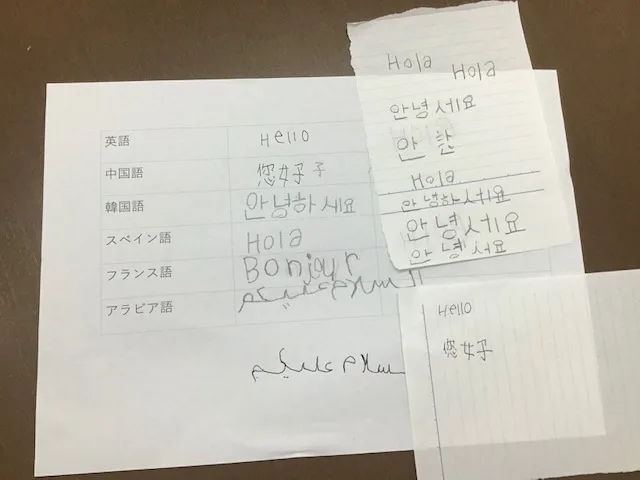 英語 Hello
中国語 您好子
韓国語 안녕하세요
スペイン語 Hola
フランス語 Bonjour
アラビア語 السلام عليكم
سلام عليكم
Hola Hola
안녕세요
안
Hola
안녕하세요
안녕세요
안녕서요
Hello
您好